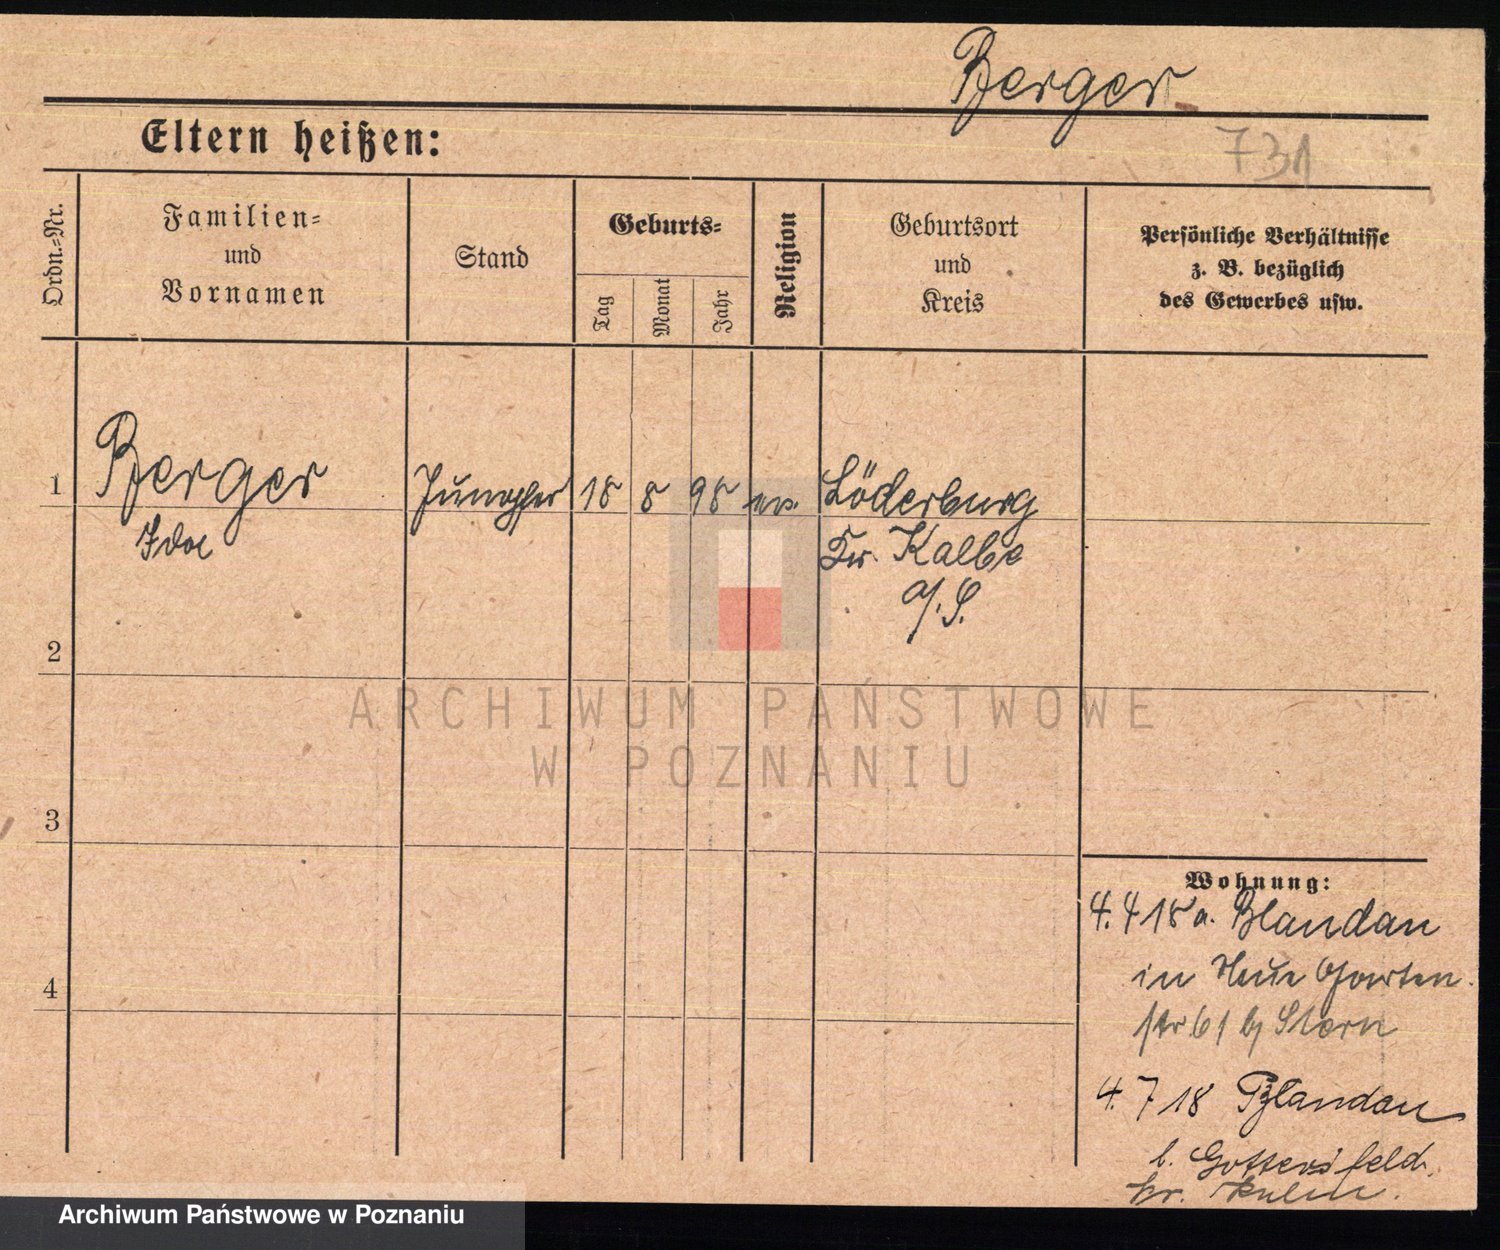 Berger
731
Eltern heißen:
Ordn.=Nr.
Familien=
und
Vornamen
Stand
Geburts=
Tag
Monat
Jahr
Religion
Geburtsort
und
Kreis
Persönliche Verhältnisse
z. B. bezüglich
des Gewerbes usw.
1
Berger
Ida
Jungfer
18
8
98
ev.
Löderburg
Kr. Kalbe
a/S.
2
3
4
Wohnung:
4. 4 18 a. Blandau
in Neue Garten
str 61 b/ Stern
4. 7 18 Blandau
b. Gottersfeld
Kr. Kulm.
ARCHIWUM PAŃSTWOWE
W POZNANIU
Archiwum Państwowe w Poznaniu